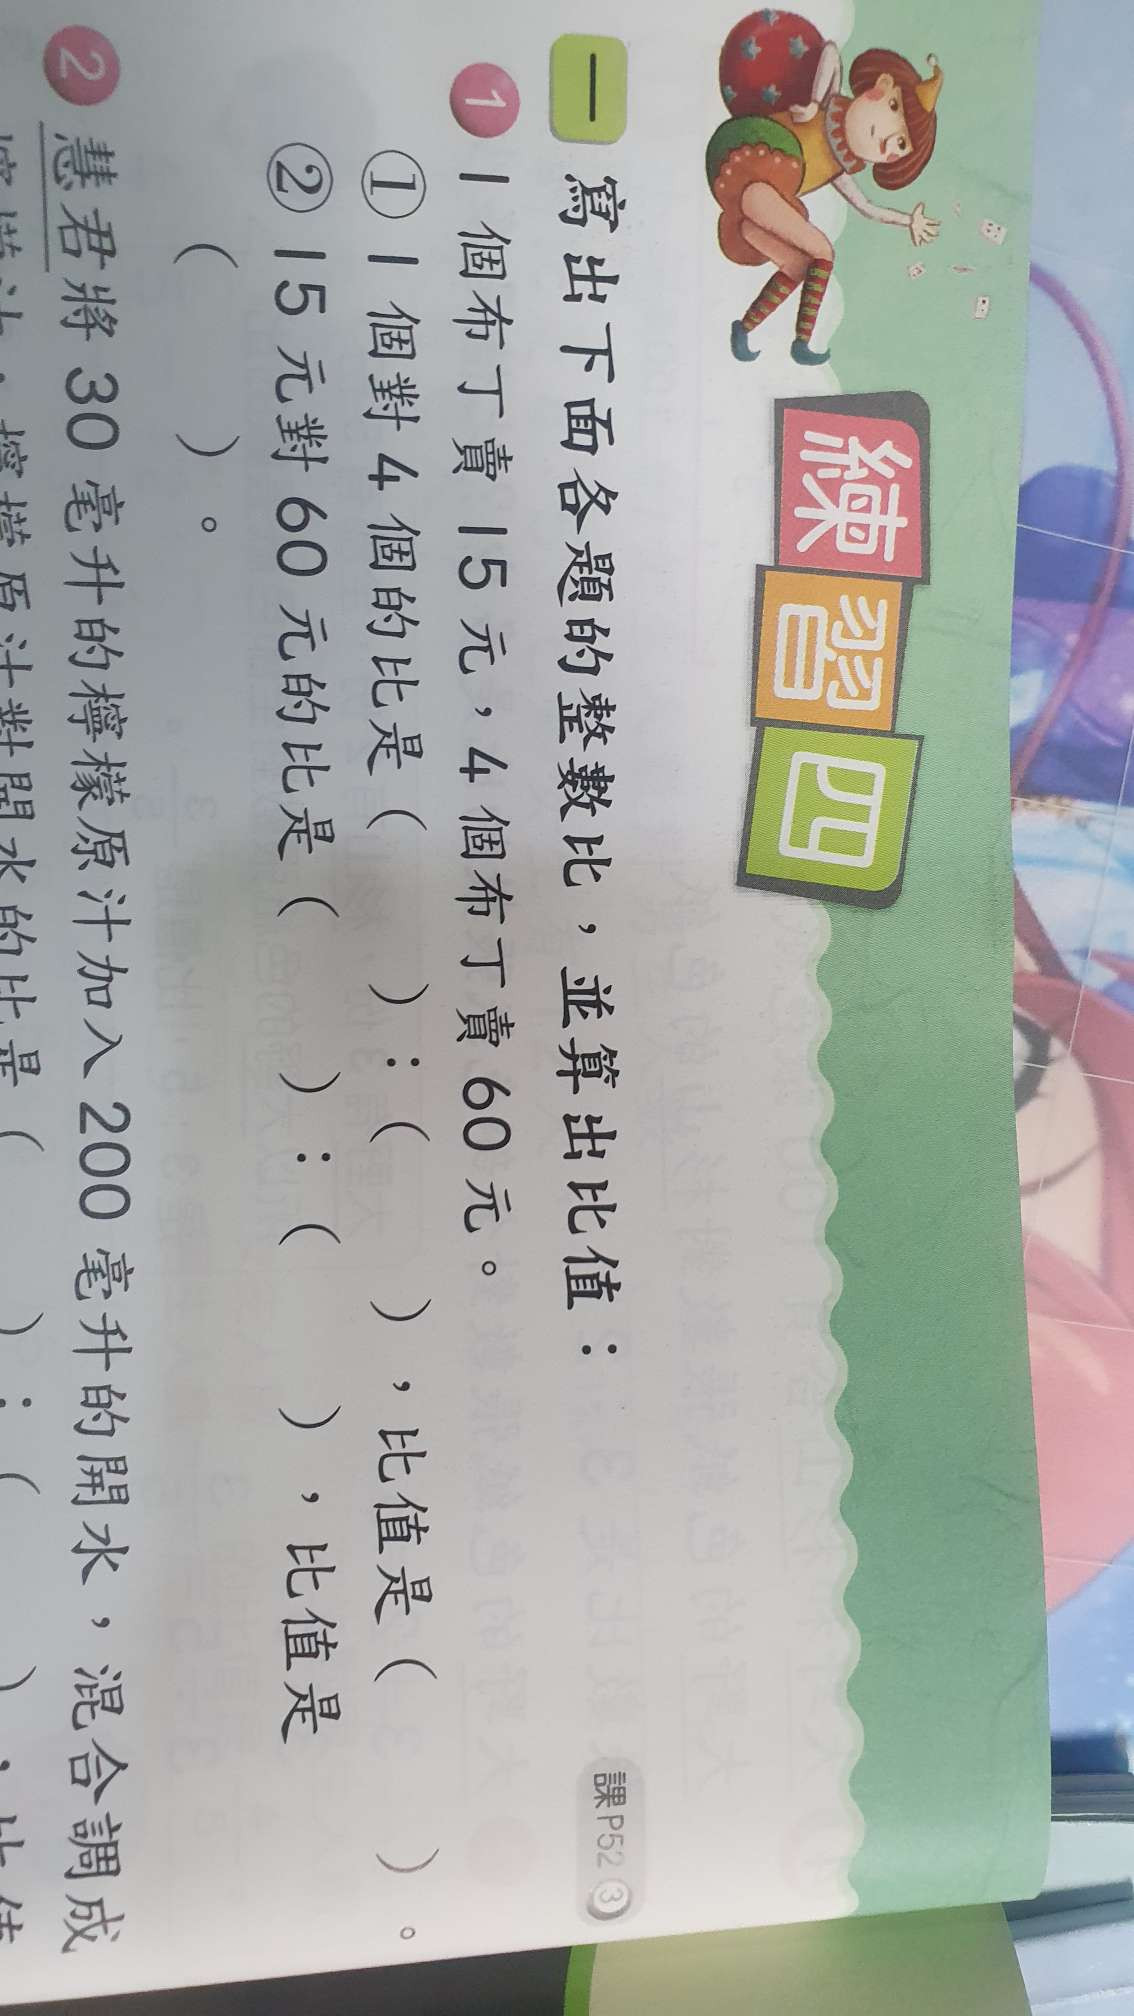 練習四
一 寫出下面各題的整數比，並算出比值： 課P52③
1 1個布丁賣15元，4個布丁賣60元。
① 1個對4個的比是（　　）：（　　），比值是（　　）。
② 15元對60元的比是（　　）：（　　），比值是
（　　）。
2 慧君將30毫升的檸檬原汁加入200毫升的開水，混合調成
檸檬汁，檸檬原汁對開水的比是（　　）：（　　），比值